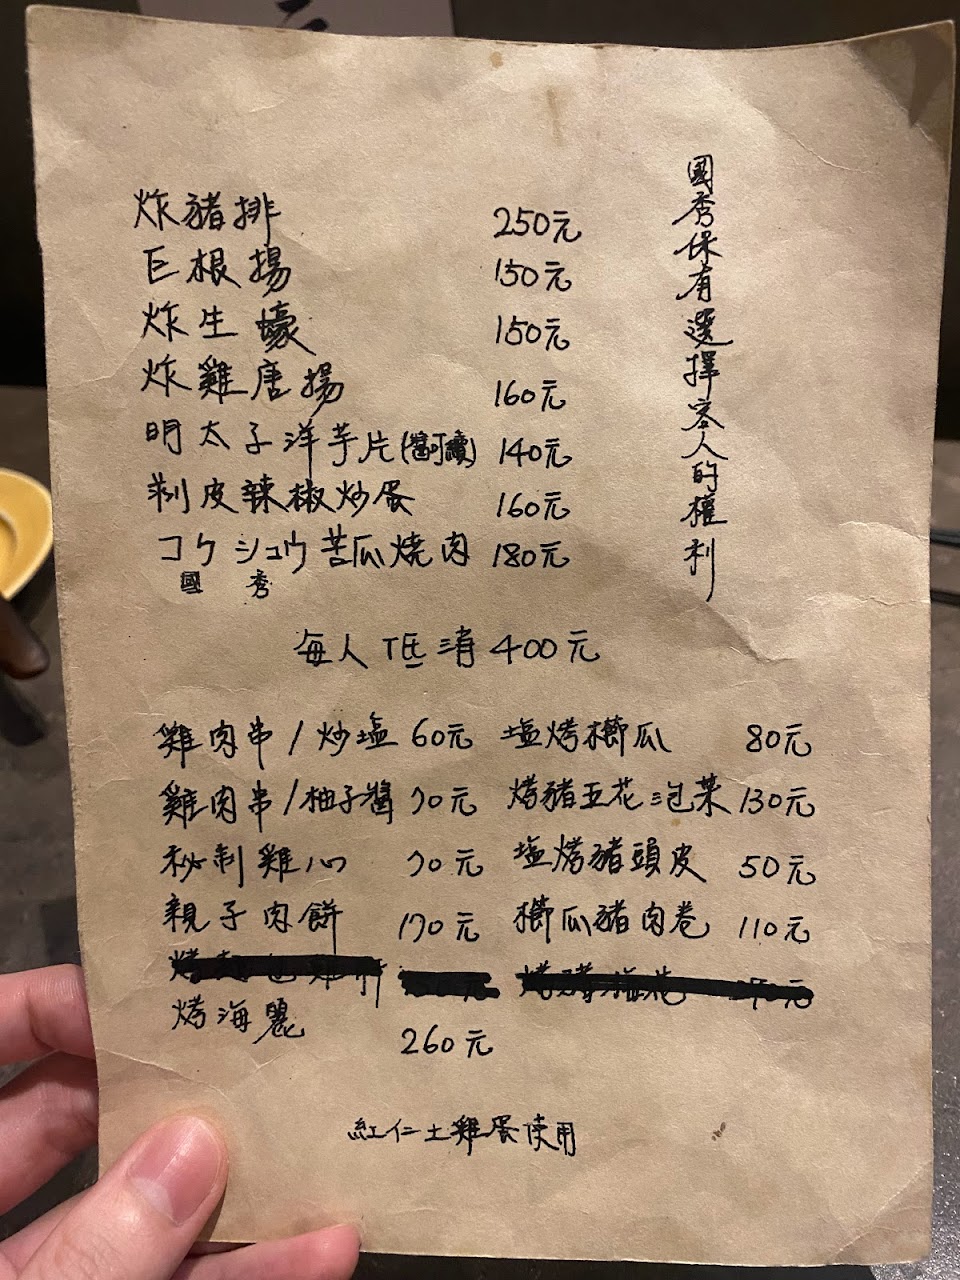 炸豬排 250元
巨根揚 150元
炸生蠔 150元
炸雞唐揚 160元
明太子洋芋片(當可續) 140元
剝皮辣椒炒蛋 160元
コクシュウ苦瓜燒肉 180元
國 秀
國秀保有選擇客人的權利
每人低消400元
雞肉串/炒塩 60元 塩烤櫛瓜 80元
雞肉串/柚子醬 70元 烤豬五花泡菜 130元
祕制雞心 70元 塩烤豬頭皮 50元
親子肉餅 170元 櫛瓜豬肉卷 110元
烤海麗 260元
紅仁土雞蛋使用